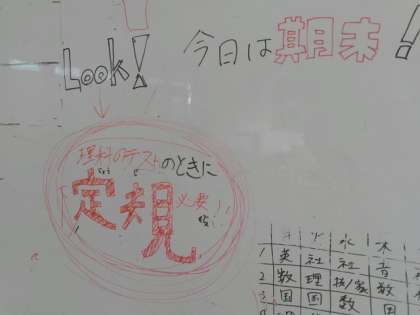 今日は期末!
Look!
理科のテストのときに
定規必要
月 火 水 木
1 英 社 社 音
2 数 理 技/家 数
3 国 国 数 国